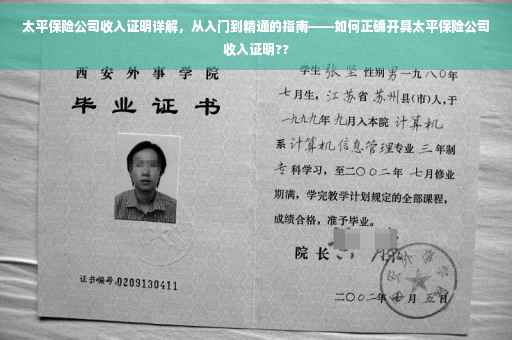 太平保险公司收入证明详解，从入门到精通的指南——如何正确开具太平保险公司
收入证明??
西安外事学院
毕业证书
证书编号:0209130411
学生张坚性别男一九八〇年
七月生，江苏省苏州县(市)人,于
一九九九年九月入本院计算机
系计算机信息管理专业三年制
专科学习，至二〇〇二年七月修业
期满，学完教学计划规定的全部课程，
成绩合格，准予毕业。
院长
二〇〇二年七月五日